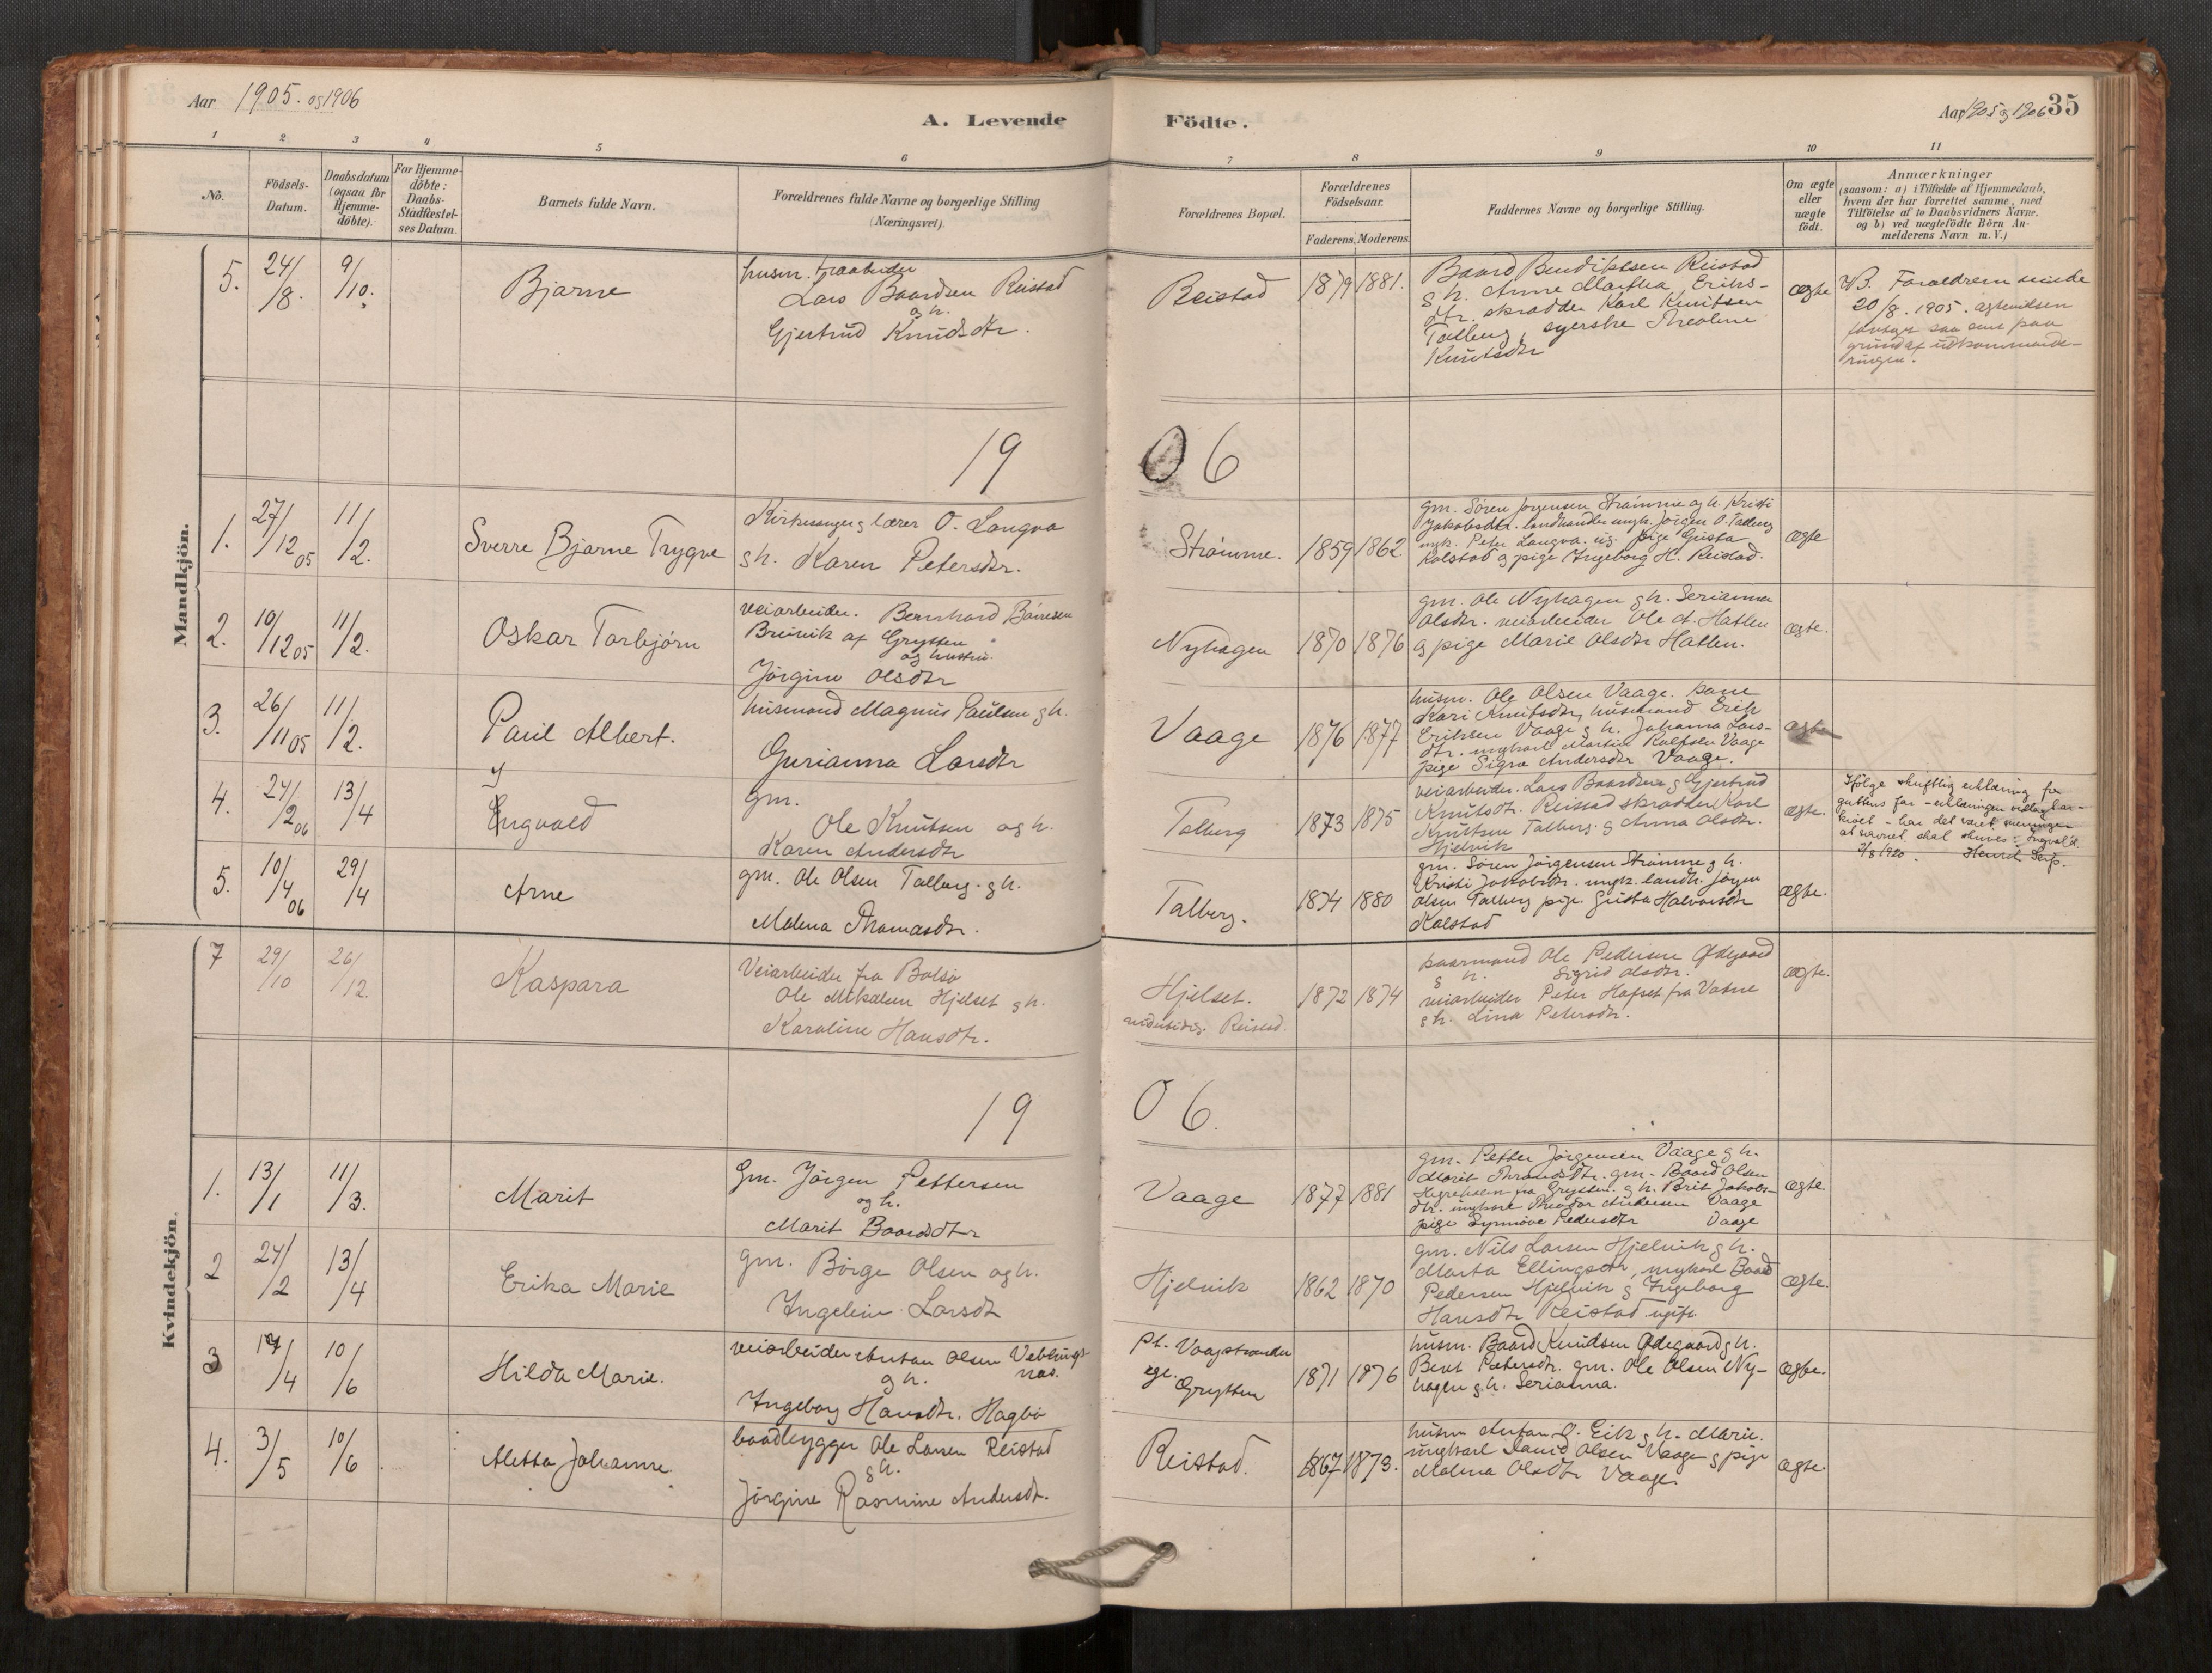 Aar 1905. og 1906
A. Levende
Födte.
Aar 1905 og 1906 35
1 2 3 4 5 6 7 8 9 10 11
No.
Födsels-
Datum.
Daabsdatum
(ogsaa for
Hjemme-
döbte).
For Hjemme-
döbte:
Daabs-
Stadfæstel-
ses Datum.
Barnets fulde Navn.
Forældrenes fulde Navne og borgerlige Stilling
(Næringsvei).
Forældrenes Bopæl.
Forældrenes
Födselsaar.
Faderens. Moderens.
Faddernes Navne og borgerlige Stilling.
Om ægte
eller
uægte
födt.
Anmærkninger
(saasom: a) i Tilfælde af Hjemmedaab,
hvem der har forrettet samme, med
Tilföielse af to Daabsvidners Navne.
og b) ved uægtefödte Börn An-
melderens Navn m. V.)
Mandkjön.
5. 24/8. 9/10. Bjarne
husm.
Lars Baardsen Reistad
og h.
Gjertrud Knudsdtr.
Reistad 1879 1881.
Baard Bendiktsen Reistad
g h. Anne Martha Eriks-
dtr. skrædder Karl Knutsen
Talberg, syerske Theoline
Knutsdtr
ægte
NB. Forældrene viede
20/8. 1905.
saa sent paa
grund af udkommande-
ringen.
19 06
1. 27/12 05 11/2. Sverre Bjarne Trygve
Kirkesanger g lærer O. Langva
g h. Karen Petersdtr.
Strømme. 1859 1862.
gm. Søren Jørgensen Strømme og h. Kristi
Jakobsdtr. landhandler ungk. Jørgen O. Talberg
ungk. Peter Langva. ug. pige Gusta
Kolstad g pige Ingeborg H. Reistad.
ægte
2. 10/12 05 11/2. Oskar Torbjørn
veiarbeider. Bernhard
Breivik af Grytten
og hustru.
Jørgine Olsdtr
Nyhagen 1870 1876
gm. Ole Nyhagen g h. Serianna
Olsdtr. veiarbeider Ole A. Hatlen
g pige Marie Olsdtr Hatlen.
ægte.
3. 26/11 05 11/2. Paul Albert.
husmand Magnus Paulsen g h.
Gurianna Larsdtr
Vaage 1876 1877
husm. Ole Olsen Vaage. kone
Kari Knutsdtr, husmand Erik
Eriksen Vaage g h. Johanna Lars-
dtr. ungkarl Martin Vaage
pige Signe Andersdtr Vaage.
ægte
4. 24/2 06 13/4 Engvald
I
gm.
Ole Knutsen og h.
Karen Andersdtr
Talberg 1873 1875
veiarbeider. Lars Baardsen g Gjertrud
Knutsdtr. Reistad skrædder Karl
Knutsen Talberg. g Anna Olsdtr.
Hjelvik
ægte.
Ifølge skriftlig erklæring fra
guttens far - erklæringen vedlagt
- har det været meningen
at navnet skal skrives: Ingvald.
2/8 1920.
5. 10/4 06 29/4 Arne
gm. Ole Olsen Talberg. g h.
Malena Thomasdtr.
Talberg. 1874 1880
gm. Søren Jørgensen Strømme g h.
Kristi Jakobsdtr. ungk. landh. Jørgen
Olsen Talberg pige. Gusta Halvorsdtr
Kolstad
ægte.
Kvindekjön.
7 29/10 26/12. Kaspara
Veiarbeider fra Bolsø
Ole Mikalsen Hjelset g h.
Karoline Hansdtr.
Hjelset.
Reistad.
1872 1874
Ole Pedersen Ødegaard
g h. Sigrid Olsdtr.
veiarbeider Peter Hafset fra Vatne
g h. Lina Petersdtr.
ægte.
19 06.
1. 13/1 11/3. Marit
Gm. Jørgen Pettersen
og h.
Marit Baardsdtr
Vaage 1877 1881
gm. Petter Jørgensen Vaage g h.
Marit gm. Baard Olsen
fra Grytten. g h. Brit Jakobs-
dtr. ungkarl Theodor Andersen Vaage
pige Synnøve Pedersdtr Vaage
ægte.
2 24/2 13/4 Erika Marie
gm. Børge Olsen og h.
Ingelein Larsdtr
Hjelvik 1862 1870
gm. Nils Larsen Hjelvik g h.
Marta Ellingsdtr, ungkarl Baard
Pedersen Hjelvik g Ingeborg
Hansdtr Reistad ugift
ægte.
3 /4 10/6 Hilda Marie.
veiarbeider Anton Olsen Veblungs-
næs.
g h.
Ingeborg Hansdtr. Hagbø
Pt. Vaagstranden
Grytten
1871 1876
husm. Baard Knudsen Ødegaard g h.
Berit Petersdtr. gm. Ole Olsen Ny-
hagen g h. Serianna.
ægte.
4. 3/5 10/6 Aletta Johanne.
baadbygger Ole Larsen Reistad
g h.
Jørgine Rasmine Andersdtr.
Reistad. 1867 1873.
husm Anton O. Eik g h. Marie.
ungkarl Olsen Vaage g pige
Malena Olsdtr Vaage.
ægte.